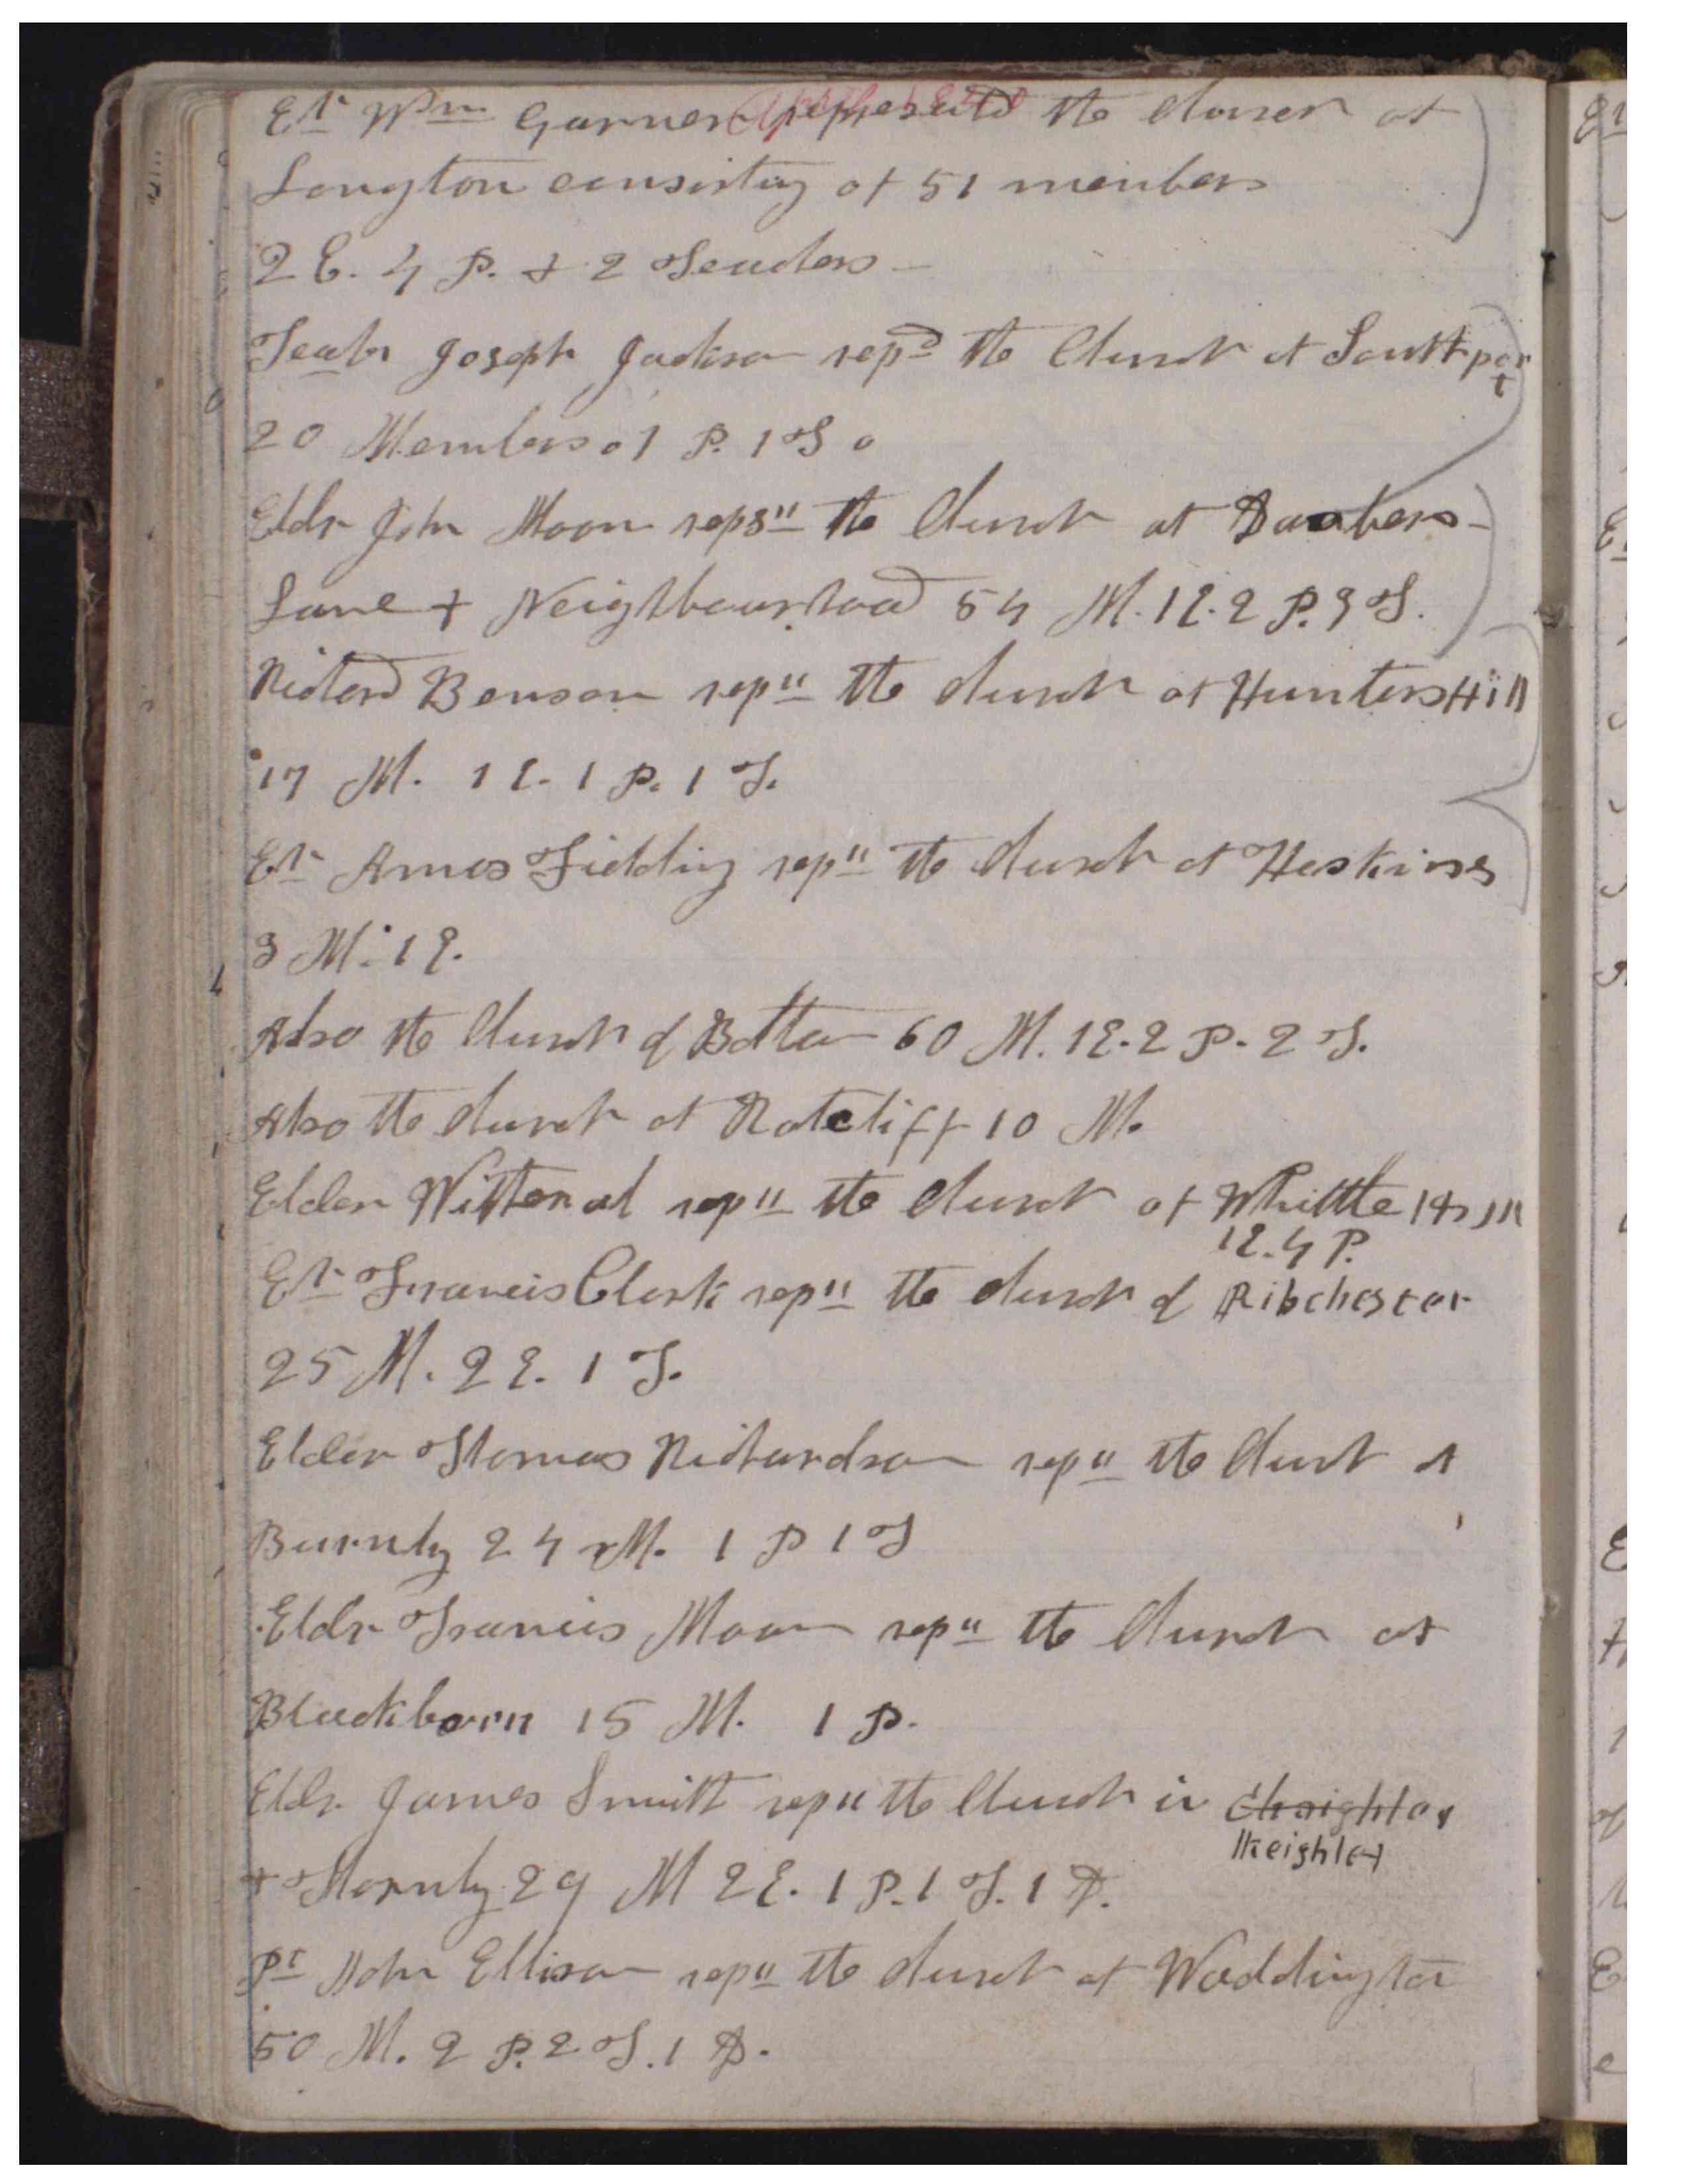 Er Wm Garner represented the church at
Longton consisting of 51 members
2 E. 4 P. & 2 Teachers —
Teachr Joseph Jackson repd the Church at Southport
20 Members . 1 P. 1 T.
Eldr John Moon reps" the Church at Daubers
Lane & Neighbourhood 54 M. 1 E. 2 P. 3 T.
Richard Benson rep" the church at Hunters Hill
17 M. 1 E. 1 P. 1 T.
Er Amos Fielding rep" the church at Heskins
3 M. 1 E.
Also the Church of Bolton 60 M. 1 E. 2 P. 2 T.
Also the church at Ratcliff 10 M.
Elder Withenal rep" the church at Whittle 18 M
1 E. 4 P.
Er Francis Clark rep" the church of Ribchester
25 M. 2 E. 1 T.
Elder Thomas Richardson rep" the Church at
Burnly 24 M. 1 P 1 T
Eldr Francis Moon rep" the Church at
Blackborn 15 M. 1 P.
Eldr James Smith rep" the Church in Chaighley
Keighley
& Thornly 29 M 2 E. 1 P. 1 T. 1 D.
Pr John Ellison rep" the church at Waddington
50 M. 2 P. 2 T. 1 D.